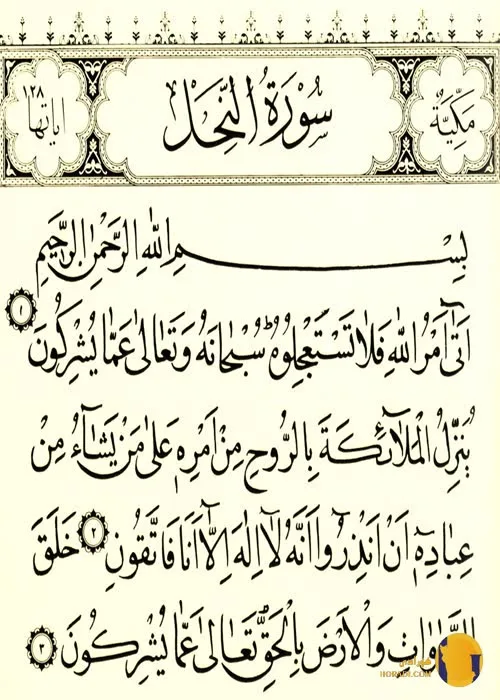 مَكِّيَّةٌ
سُورَةُ النَّحْلِ
اٰیاتها ۱۲۸
بِسْمِ اللّٰهِ الرَّحْمٰنِ الرَّحِيمِ
اَتٰٓى اَمْرُ اللّٰهِ فَلَا تَسْتَعْجِلُوهُ ط سُبْحَانَهُ وَتَعَالٰى عَمَّا يُشْرِكُونَ ۱
يُنَزِّلُ الْمَلَآئِكَةَ بِالرُّوحِ مِنْ اَمْرِهٖ عَلٰى مَنْ يَشَآءُ مِنْ
عِبَادِهٖٓ اَنْ اَنْذِرُوٓا اَنَّهُ لَآ اِلٰهَ اِلَّآ اَنَا فَاتَّقُونِ ۲ خَلَقَ
السَّمٰوَاتِ وَالْاَرْضَ بِالْحَقِّ تَعَالٰى عَمَّا يُشْرِكُونَ ۳
HORADE.COM